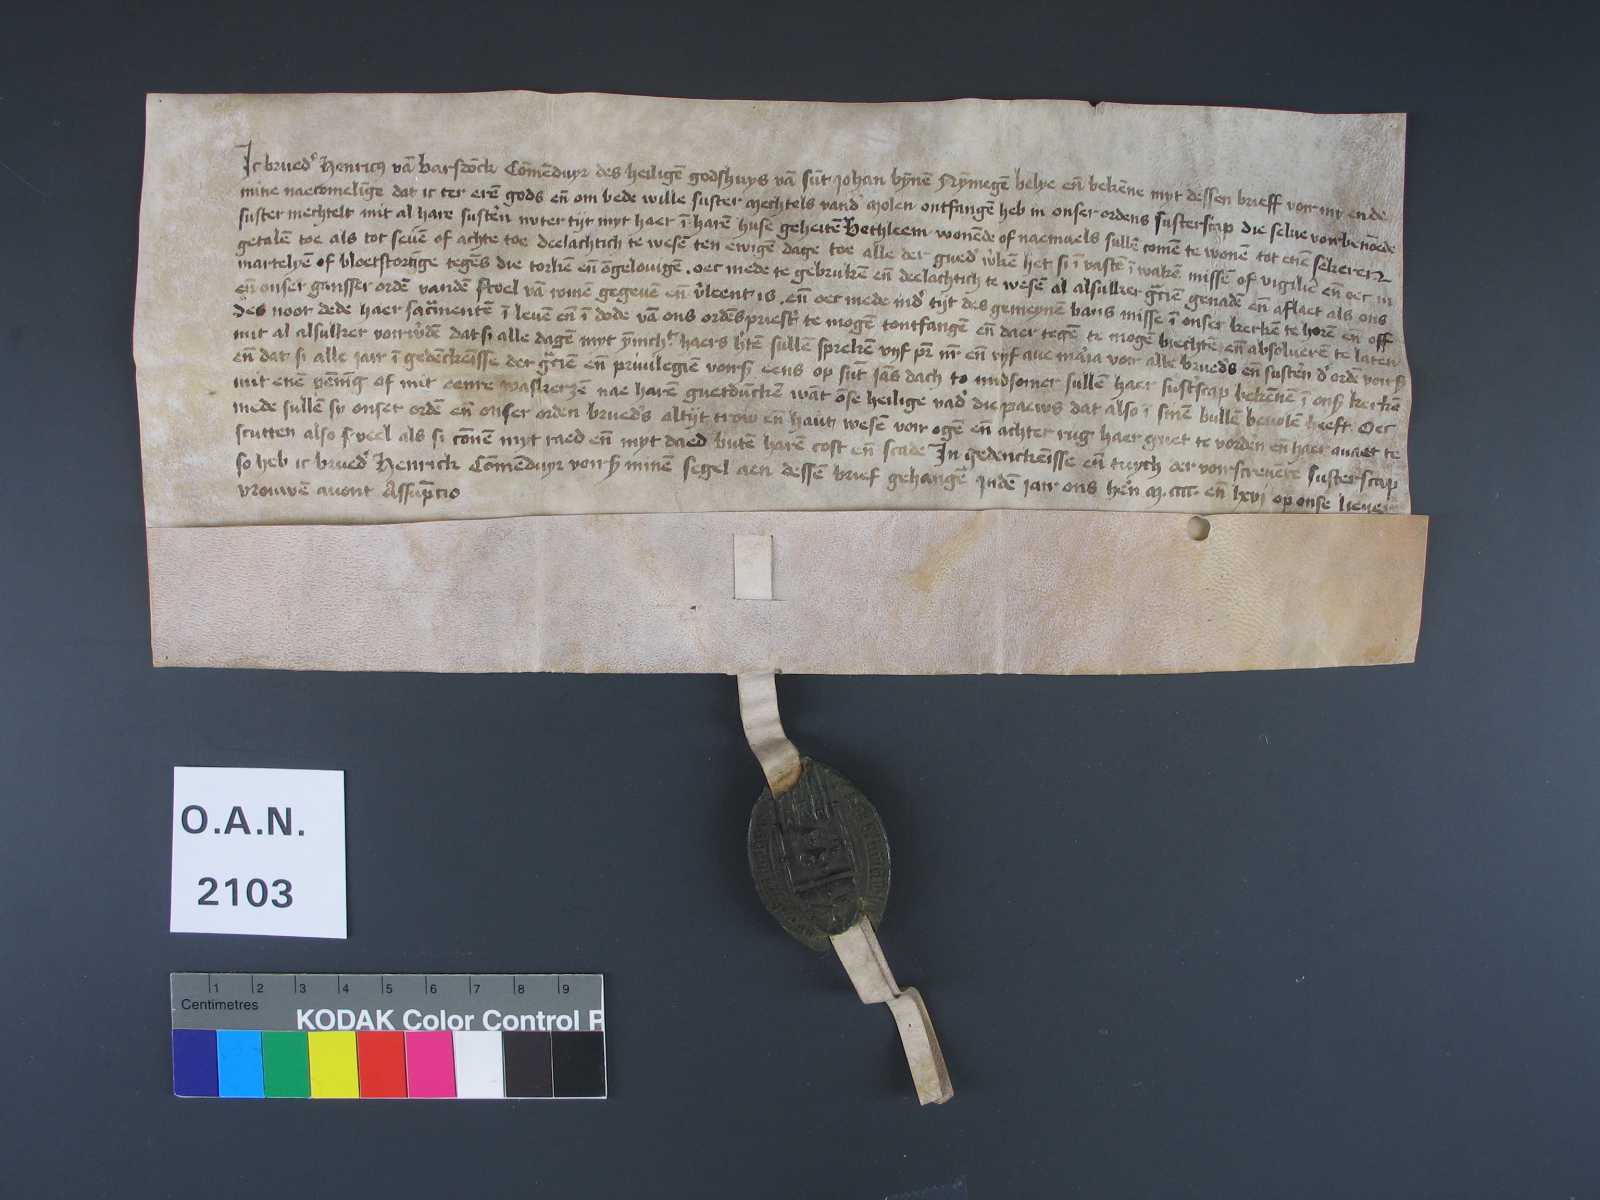 Ic brued' Henrich vā Barsdōck Cōmēduyr des heiligē godshuys vā sūt Johan bȳnē Nȳmegē belye eñ bekēne myt dessen brieff voir my ende
mine naecomelīge dat ic ter erē gods eñ om bede wille suster Mechtels vand' Molen ontfangē heb in onser ordens susterscap die selue voirbenoēde
suster Mechtelt mit al hare sustēn nv ter tijt myt haer ī harē huse geheitē Bethleem wonēde of naemaels sullē comē te wonē tot enē sekeren
getalē toe als tot seuē of achte toe deelachtich te wesē ten ewigē dage toe alle der gued' w'kē het si ī vastē ī wakē missēn of vigiliē eñ oec in
martelyē of bloetstortīge tegēs die torkē eñ ōgelouigē . oec mede te gebrukē eñ deelachtich te wesē al alsulker gr̄ciē genadē eñ aflaet als ons
eñ onser gansser ordē vandē stoel vā romē gegeuē eñ v'leent is . eñ oec mede ind' tijt des gemeynē bans misse ī onser kerkē te horē eñ off
des noot dede haer sac̄mentē ī leuē eñ ī dode vā ons ordēs priest' te mogē tontfangē eñ daer tegē te mogē biechtē eñ absoluerē te laten
mit al alsulker voirw'dē dat si alle dagē myt ȳnich' haers h'tē sullē sprekē vijf pr̄ nr̄ eñ vijf aue maria voir alle brued's eñ sustēn d' ordē voirs̄
eñ dat si alle jair ī gedēckēisse der gr̄ciē eñ priuilegiē voirs̄ eens op sūt Jās dach to midsomer sullē haer sust'scap bekēnē ī ons' kerkē
mit enē pēnīg of mit eenre waskerzē nae harē guetdūckē wāt ōse heilige vad' die paews dat also ī sinē bullē beuolē heeft. Oec
mede sullē sy onser ordē eñ onser orden brued's altijt trow eñ haut wesē voir ogē eñ achter rug haer guet te vorden eñ haer quaet te
scutten also veel als si cōnē myt raed eñ myt daed butē harē cost eñ scade In gedenckeīsse eñ tuych der voirscreuēre susterscap
so heb ic brued' Henrick Cōmēduyr voirs̄ minē segel aen dessē brief gehangē Indē jair ons hēn M. CCCC eñ lxvi op onse lieue
vrouwē auont Assūpcio
O.A.N.
2103
1 2 3 4 5 6 7 8 9
Centimetres
KODAK Color Control P